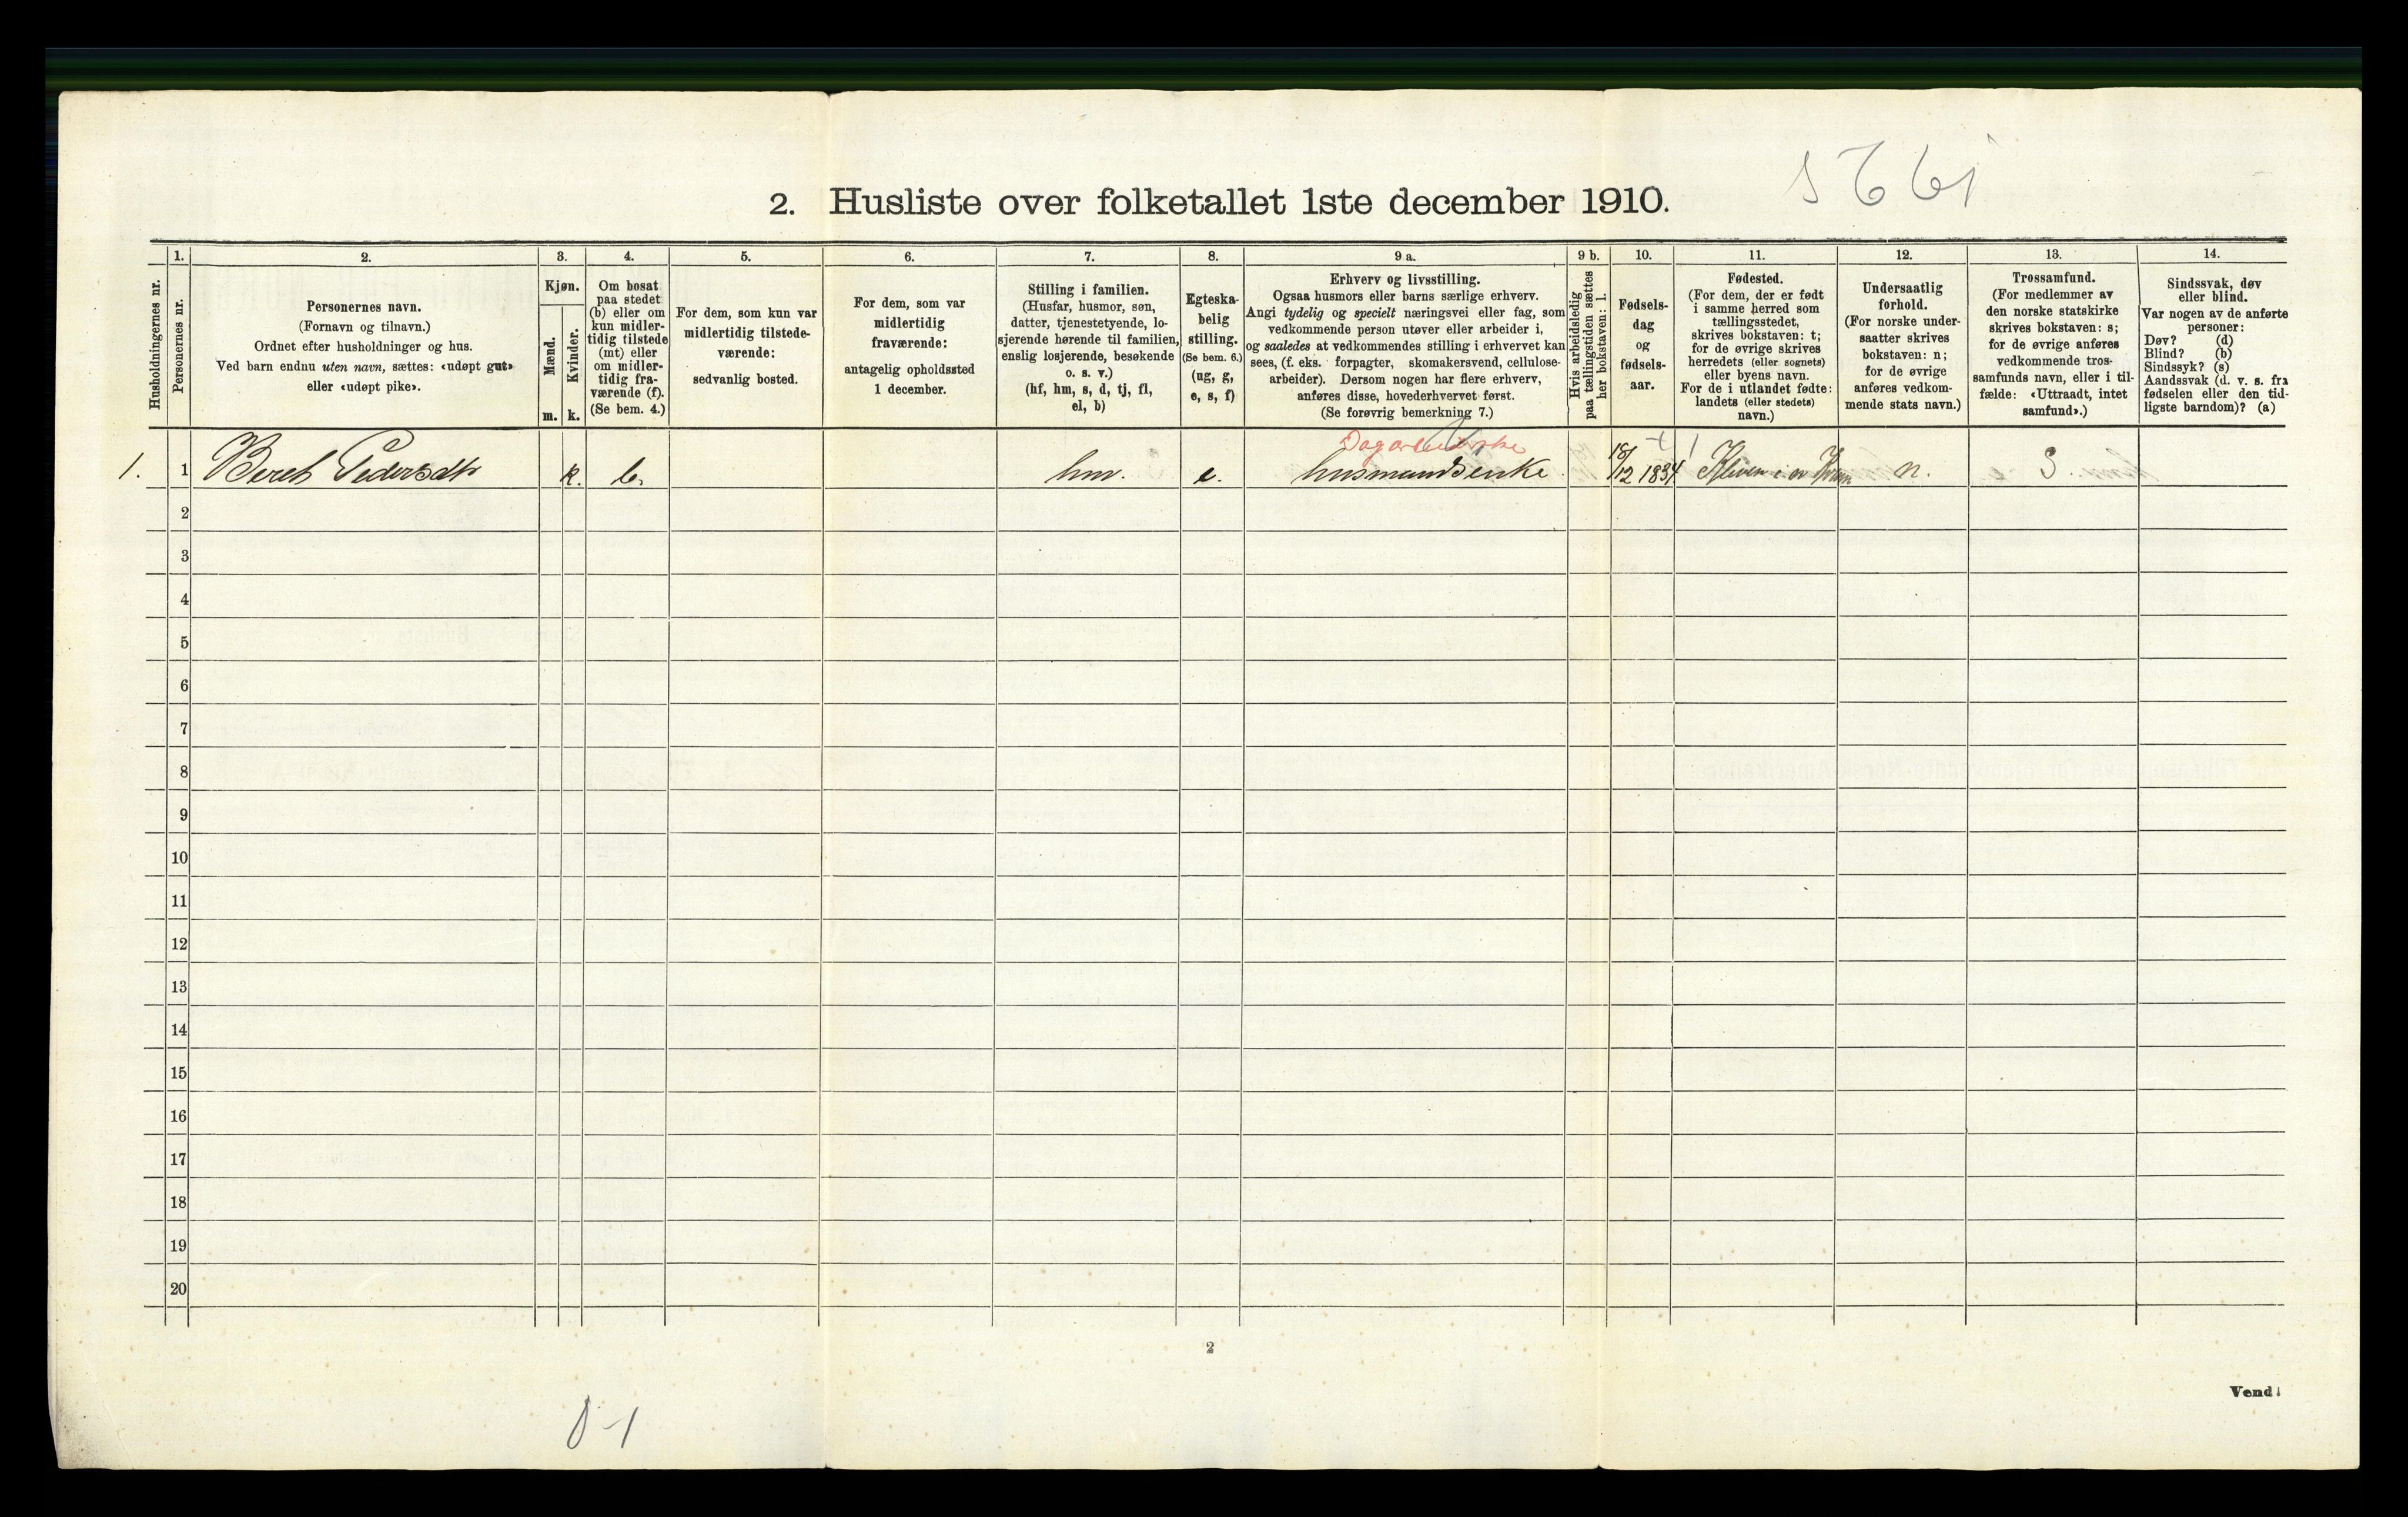 5661
2. Husliste over folketallet 1ste december 1910.
Husholdningernes nr.
1.
Personernes nr.
2.
Personernes navn.
(Fornavn og tilnavn.)
Ordnet efter husholdninger og hus.
Ved barn endnu uten navn, sættes: «udøpt gut»
eller «udøpt pike».
3.
Kjøn.
Mænd.
m.
Kvinder.
k.
4.
Om bosat
paa stedet
(b) eller om
kun midler-
tidig tilstede
(mt) eller
om midler-
tidig fra-
værende (f).
(Se bem. 4.)
5.
For dem, som kun var
midlertidig tilstede-
værende:
sedvanlig bosted.
6.
For dem, som var
midlertidig
fraværende:
antagelig opholdssted
1 december.
7.
Stilling i familien.
(Husfar, husmor, søn,
datter, tjenestetyende, lo-
sjerende hørende til familien,
enslig losjerende, besøkende
o. s. v.)
(hf, hm, s, d, tj, fl,
el, b)
8.
Egteska-
belig
stilling.
(Se bem. 6.)
(ug, g,
e, s, f)
9 a.
Erhverv og livsstilling.
Ogsaa husmors eller barns særlige erhverv.
Angi tydelig og specielt næringsvei eller fag, som
vedkommende person utøver eller arbeider i,
og saaledes at vedkommendes stilling i erhvervet kan
sees, (f. eks. forpagter, skomakersvend, cellulose-
arbeider). Dersom nogen har flere erhverv,
anføres disse, hovederhvervet først.
(Se forøvrig bemerkning 7.)
9 b.
Hvis arbeidsledig
paa tællingstiden sættes
her bokstaven: l.
10.
Fødsels-
dag
og
fødsels-
aar.
11.
Fødested.
(For dem, der er født
i samme herred som
tællingsstedet,
skrives bokstaven: t;
for de øvrige skrives
herredets (eller sognets)
eller byens navn.
For de i utlandet fødte:
landets (eller stedets)
navn.)
12.
Undersaatlig
forhold.
(For norske under-
saatter skrives
bokstaven: n;
for de øvrige
anføres vedkom-
mende stats navn.)
13.
Trossamfund.
(For medlemmer av
den norske statskirke
skrives bokstaven: s;
for de øvrige anføres
vedkommende tros-
samfunds navn, eller i til-
fælde: «Uttraadt, intet
samfund».)
14.
Sindssvak, døv
eller blind.
Var nogen av de anførte
personer:
Døv? (d)
Blind? (b)
Sindssyk? (s)
Aandssvak (d. v. s. fra
fødselen eller den tid-
ligste barndom)? (a)
Dagarbeiderske
1. 1 Beret Pedersdtr k. b. hm. e. husmandsenke 18/12 1834 n. S.
2
3
4
5
6
7
8
9
10
11
12
13
14
15
16
17
18
19
20
2
Vend!
0-1